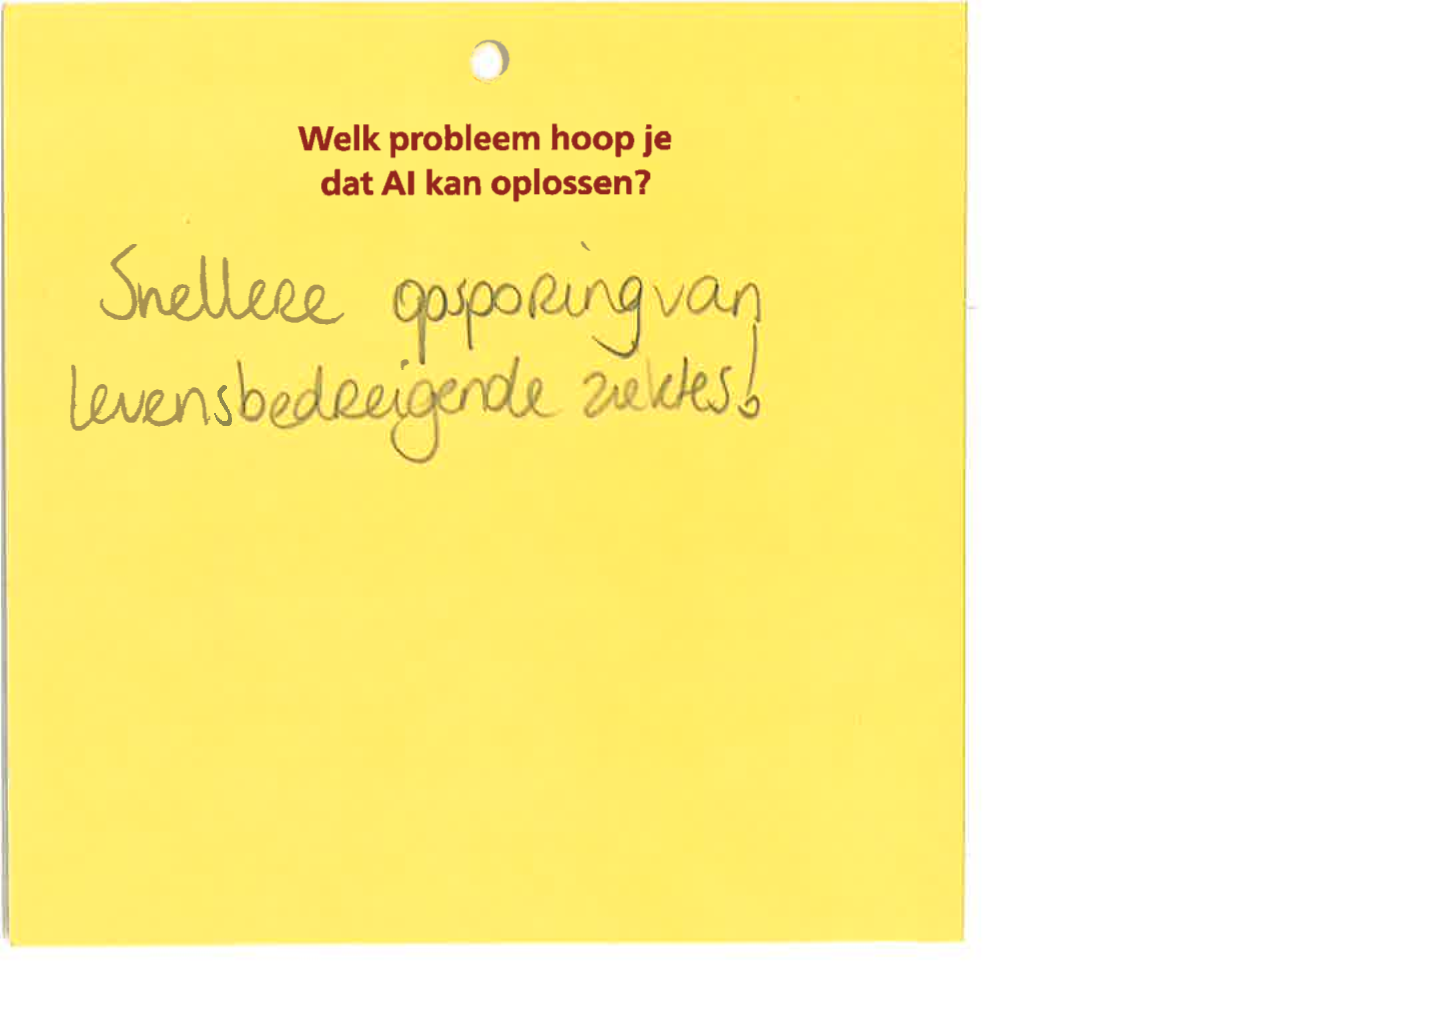 Welk probleem hoop je
dat AI kan oplossen?
Snellere opsporing van
levensbedreigende ziektes!